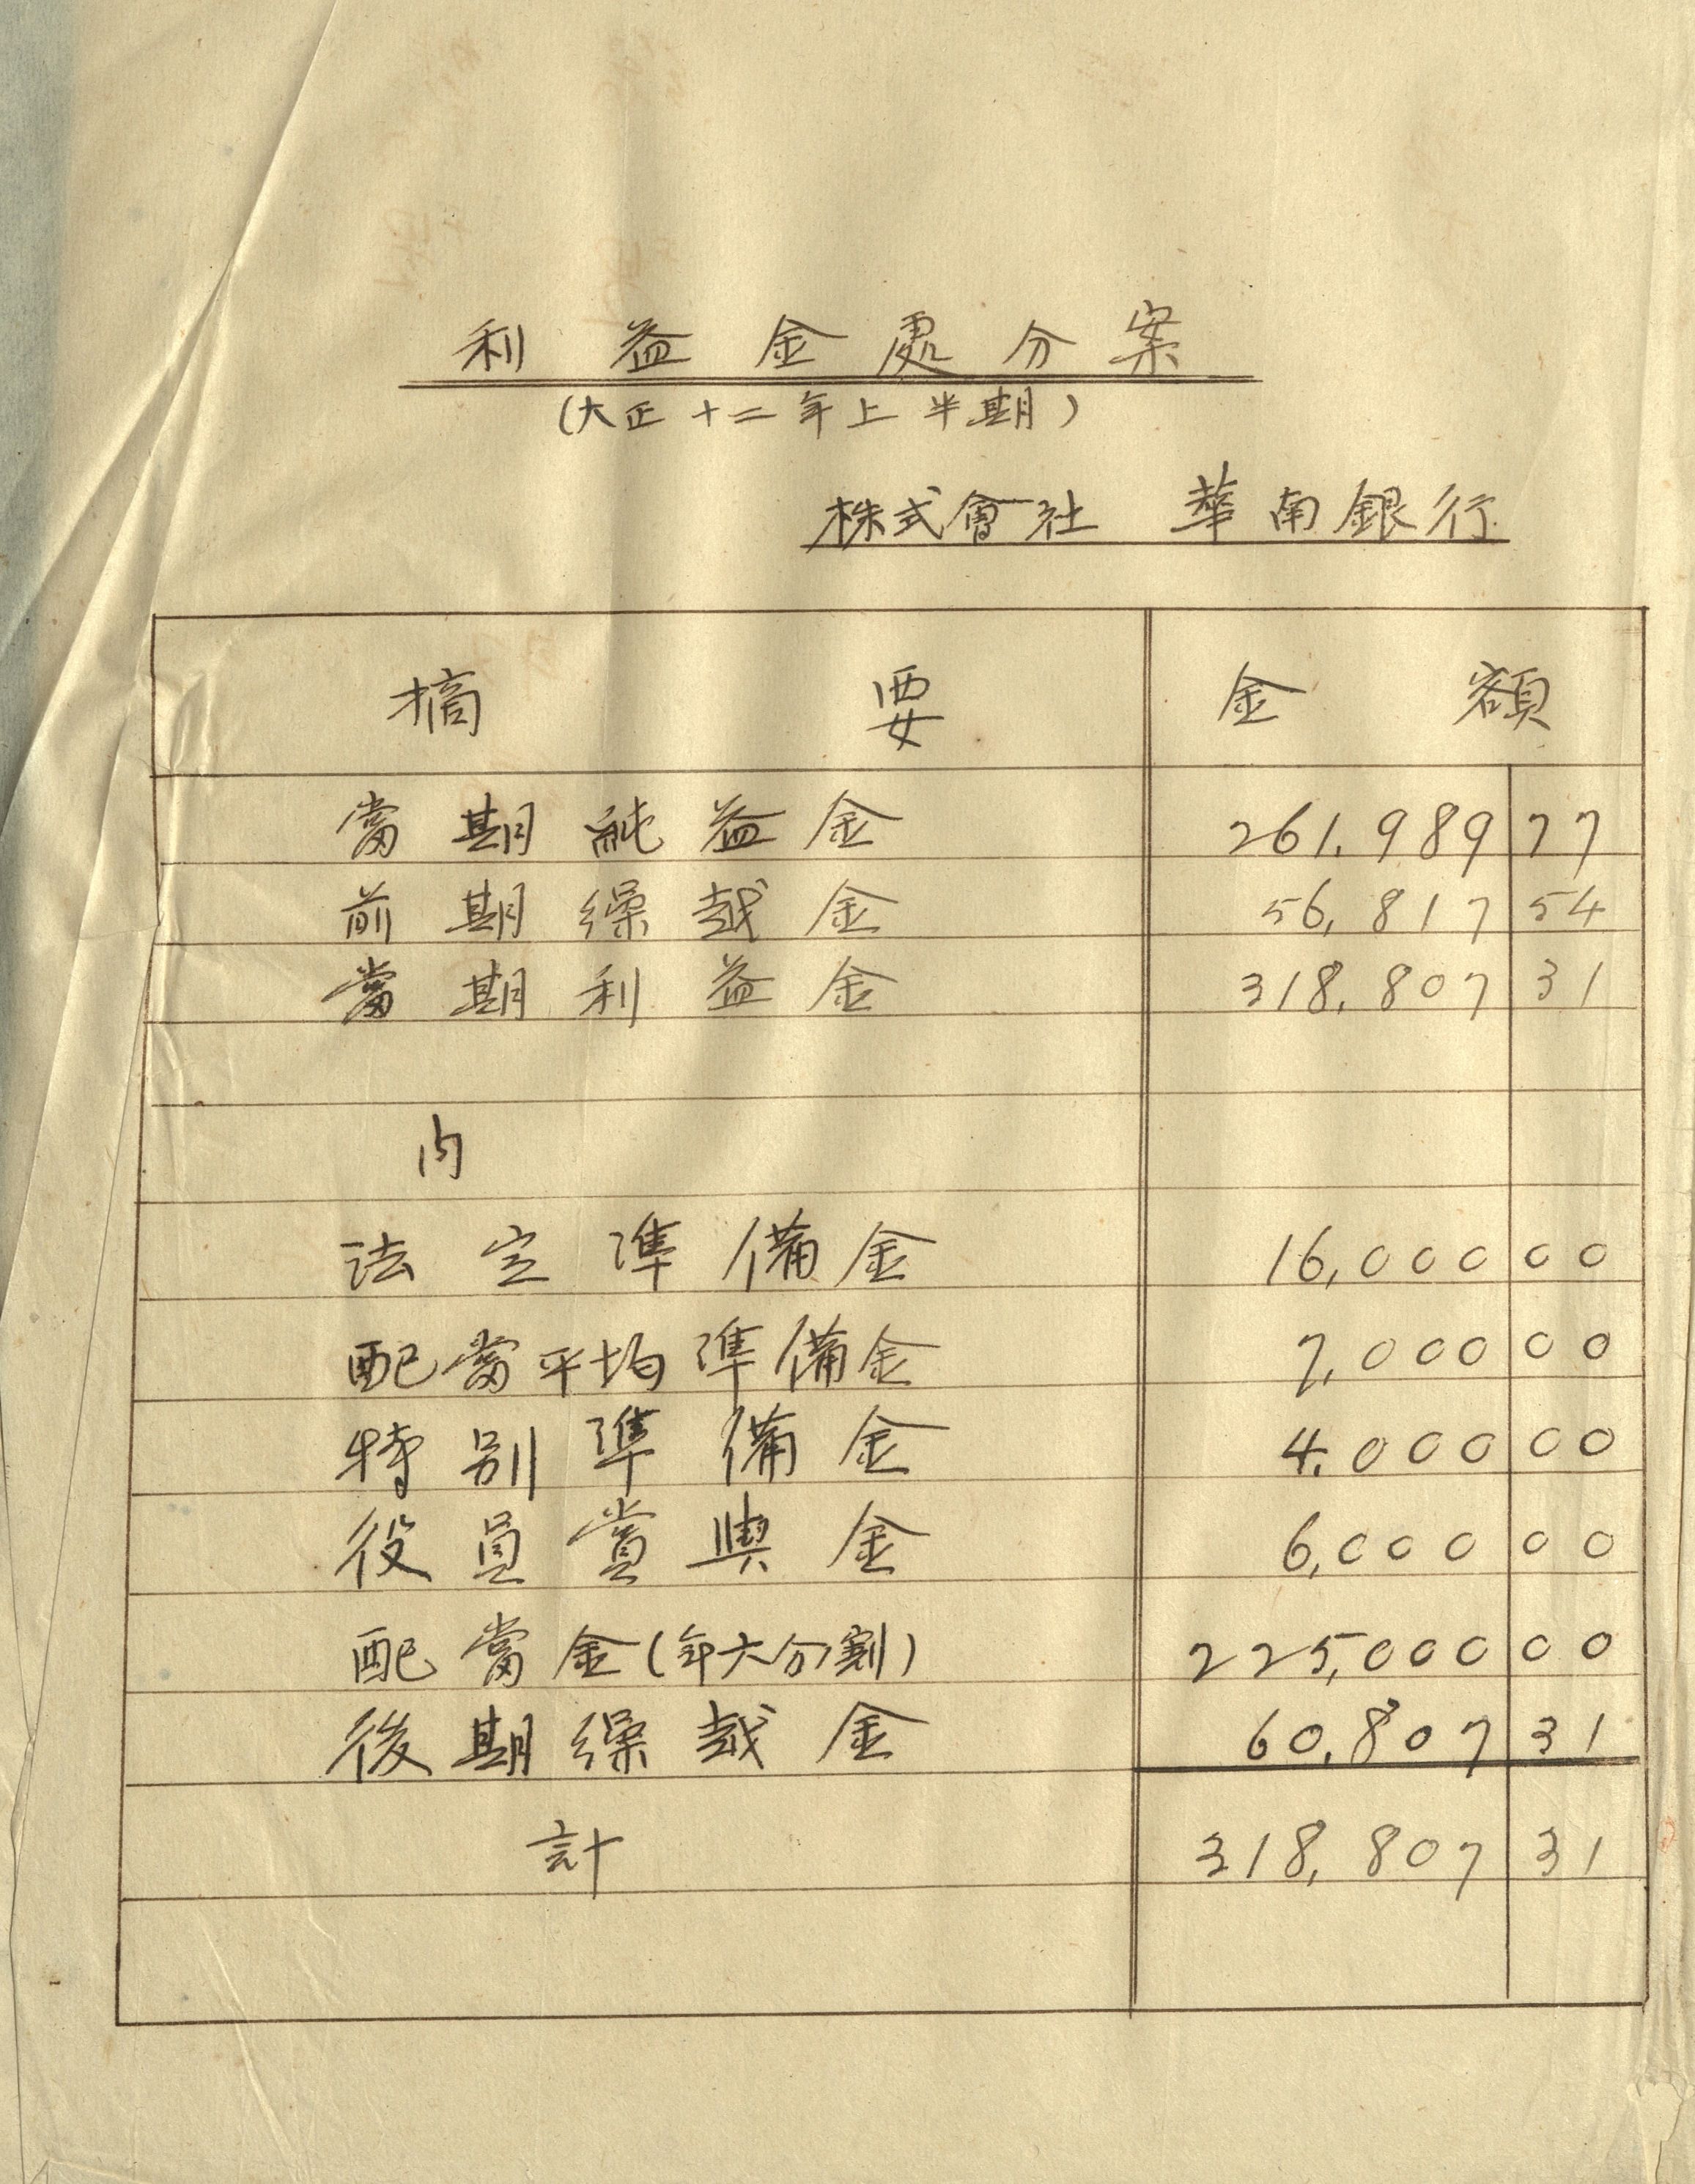 利益金處分案
(大正十二年上半期)
株式會社 華南銀行
摘要 金額
當期純益金 261,989 77
前期繰越金 56,817 54
當期利益金 318,807 31
内
法定準備金 16,000 00
配當平均準備金 7,000 00
特別準備金 4,000 00
役員賞與金 6,000 00
配當金(年六分割) 225,000 00
後期繰越金 60,807 31
計 318,807 31